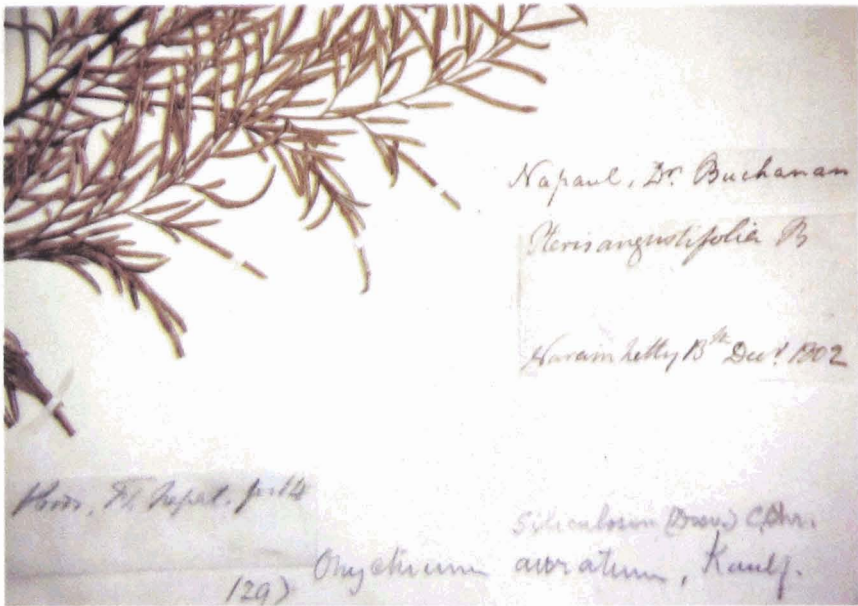 Napaul, Dr. Buchanan
Pteris angustifolia B
Narainhetty 13th Decr. 1802
Prod. Fl. Nepal. p. 14
Siliculosum (Desv.) C.Chr.
1297 Onychium auratum, Kaulf.